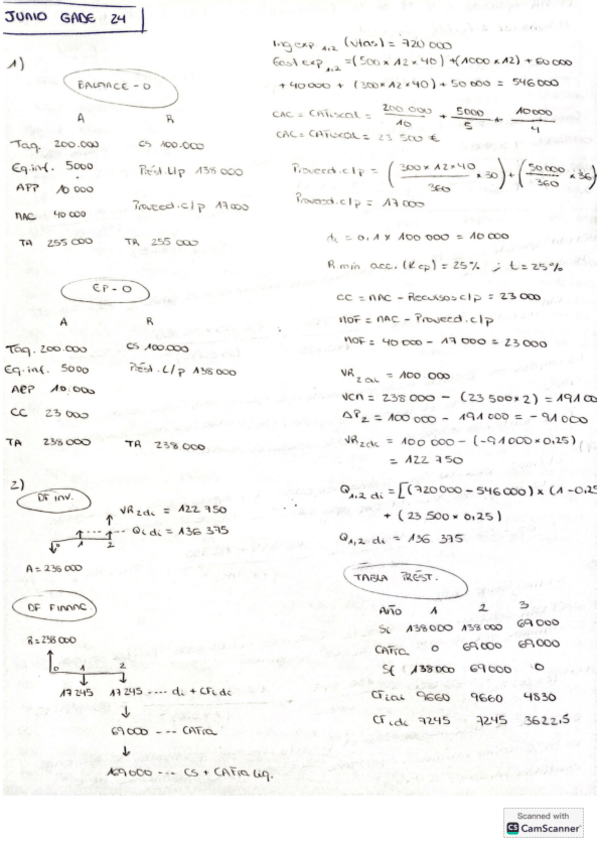 JUNIO GADE 24
1)
BALANCE - 0
A R
Taq. 200.000 CS 100.000
Eq.inf. 5000 Prést. L/p 138 000
APP 10 000
Proveed. c/p 17000
NAC 40 000
TA 255 000 TR 255 000
EP - 0
A R
Taq. 200.000 CS 100.000
Eq.inf. 5000 Prést. L/p 138 000
APP 10.000
CC 23 000
TA 238 000 TR 238 000
2)
DF inv.
VR2di = 122 750
Qidi = 136 375
0 1 2
A = 238 000
DF FINANC.
R = 238 000
0 1 2
17245 17245 ---- di + CFi di
69000 --- CAFia
169000 --- CS + CAFia liq.
Ing exp 1,2 (Vtas) = 720 000
Gast exp 1,2 = (500 x 12 x 40) + (1000 x 12) + 60 000
+ 40 000 + (300 x 12 x 40) + 50 000 = 546 000
CAC = CAFiscal = 200 000/10 + 5000/5 + 10000/4
CAC = CAFiscal = 23 500 €
Proveed. c/p = (300 x 12 x 40/360 x 30) + (50 000/360 x 36)
Proveed. c/p = 17 000
di = 0,1 x 100 000 = 10 000
R min acc. (Kcp) = 25% ; t = 25%
CC = NAC - Recursos c/p = 23 000
NOF = NAC - Proveed. c/p
NOF = 40 000 - 17 000 = 23 000
VR2ai = 100 000
VCN = 238 000 - (23 500 x 2) = 191 000
ΔP2 = 100 000 - 191 000 = - 91 000
VR2di = 100 000 - (-91 000 x 0,25)
= 122 750
Q1,2 di = [(720 000 - 546 000) x (1 - 0,25
+ (23 500 x 0,25)
Q1,2 di = 136 375
TABLA PRÉST.
AÑO 1 2 3
Si 138 000 138 000 69 000
CAFia 0 69 000 69 000
Sf 138 000 69 000 0
CFi ai 9660 9660 4830
CFi di 7245 7245 3622,5
Scanned with
CS CamScanner